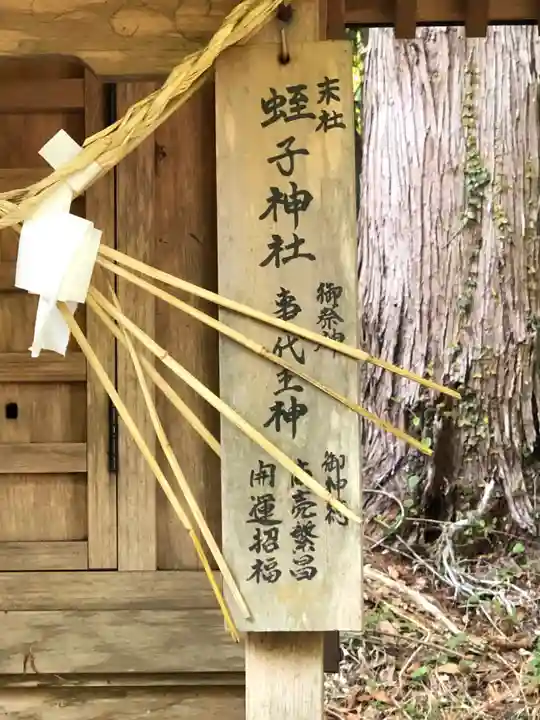 末社
蛭子神社
御祭神
事代主神
御神徳
商売繁昌
開運招福